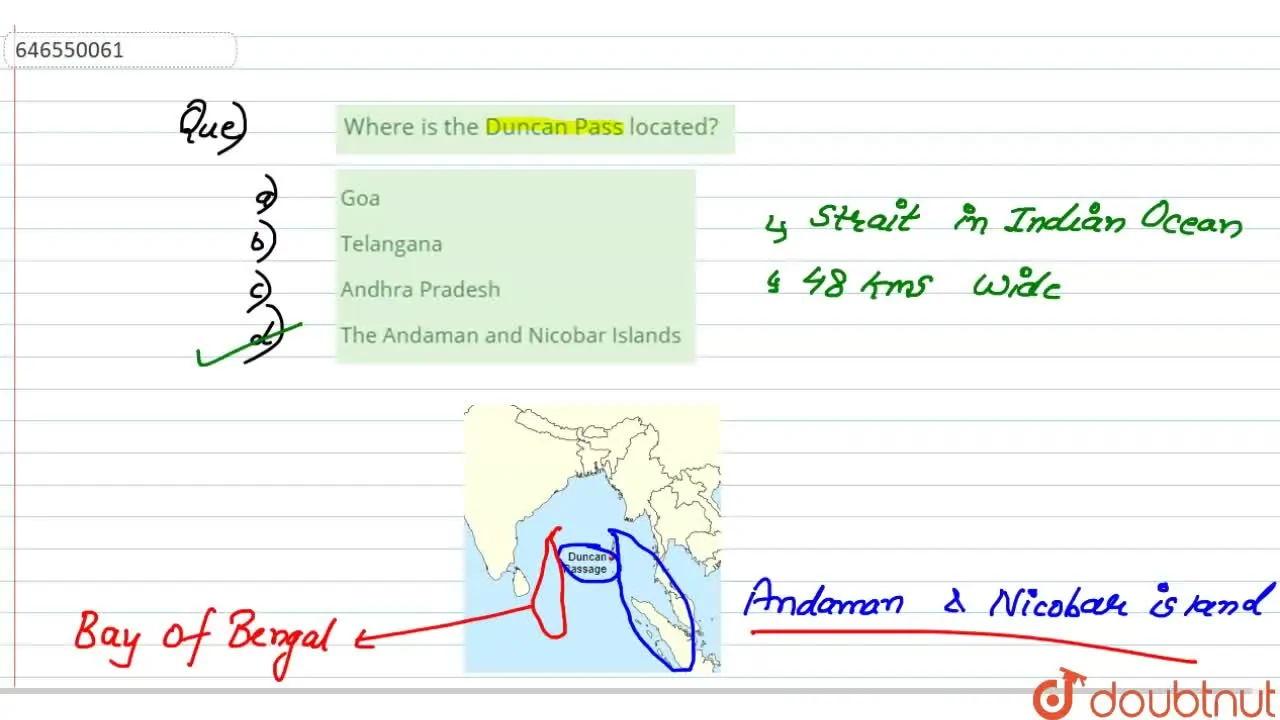 646550061
Que) Where is the Duncan Pass located?
a) Goa
b) Telangana
c) Andhra Pradesh
d) The Andaman and Nicobar Islands
↳ Strait in Indian Ocean
↳ 48 kms wide
Duncan
Passage
Bay of Bengal
Andaman & Nicobar island
doubtnut